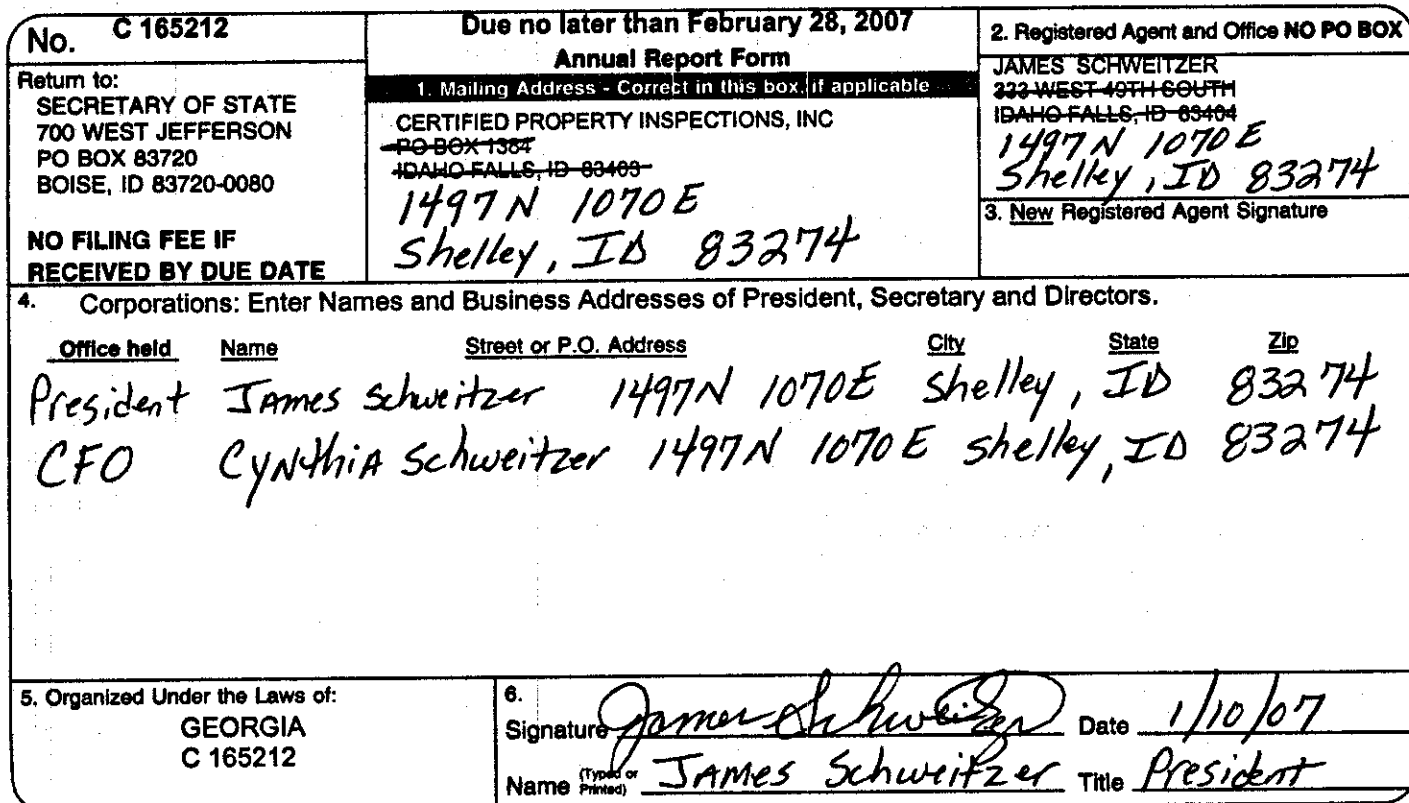 No. C 165212
Return to:
SECRETARY OF STATE
700 WEST JEFFERSON
PO BOX 83720
BOISE, ID 83720-0080
NO FILING FEE IF
RECEIVED BY DUE DATE
Due no later than February 28, 2007
Annual Report Form
1. Mailing Address - Correct in this box, if applicable
CERTIFIED PROPERTY INSPECTIONS, INC
PO BOX 1384
IDAHO FALLS, ID 83403
1497 N 1070 E
Shelley, ID 83274
2. Registered Agent and Office NO PO BOX
JAMES SCHWEITZER
333 WEST 49TH SOUTH
IDAHO FALLS, ID 83404
1497 N 1070 E
Shelley, ID 83274
3. New Registered Agent Signature
4. Corporations: Enter Names and Business Addresses of President, Secretary and Directors.
Office held Name Street or P.O. Address City State Zip
President James Schweitzer 1497 N 1070 E Shelley, ID 83274
CFO Cynthia Schweitzer 1497 N 1070 E Shelley, ID 83274
5. Organized Under the Laws of:
GEORGIA
C 165212
6.
Signature James Schweitzer Date 1/10/07
Name (Typed or Printed) James Schweitzer Title President